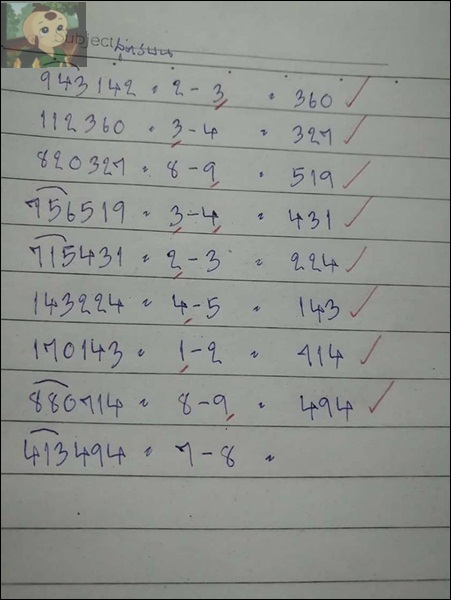 Subject
943142 = 2 - 3 = 360 ✓
112360 = 3 - 4 = 327 ✓
820327 = 8 - 9 = 519 ✓
756519 = 3 - 4 = 431 ✓
715431 = 2 - 3 = 224 ✓
143224 = 4 - 5 = 143 ✓
170143 = 1 - 2 = 714 ✓
880714 = 8 - 9 = 494 ✓
413494 = 7 - 8 =